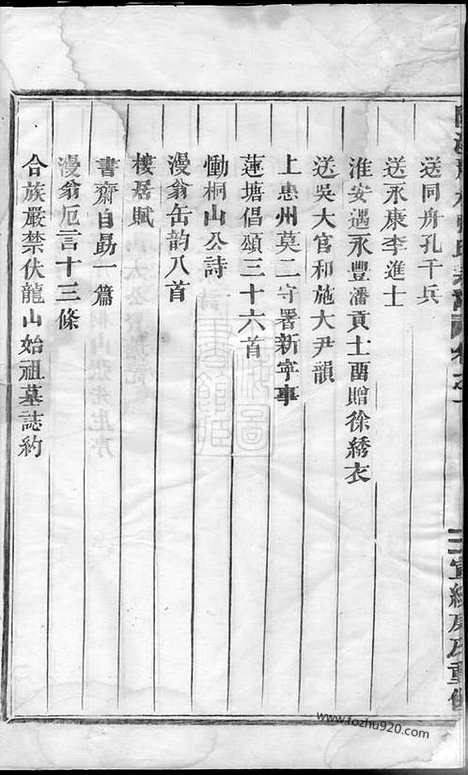 送同舟孔千兵
送永康李進士
淮安遇永豐潘貢士畱贈徐綉衣
送吳大官和施大尹韻
上惠州莫二守署新寧事
蓮塘倡頌三十六首
慟桐山公詩
漫翁缶韵八首
樓居賦
書齋自勗一篇
漫翁卮言十三條
合族嚴禁伏龍山始祖墓誌約
三
宣統庚戌重修
www.fozhu920.com